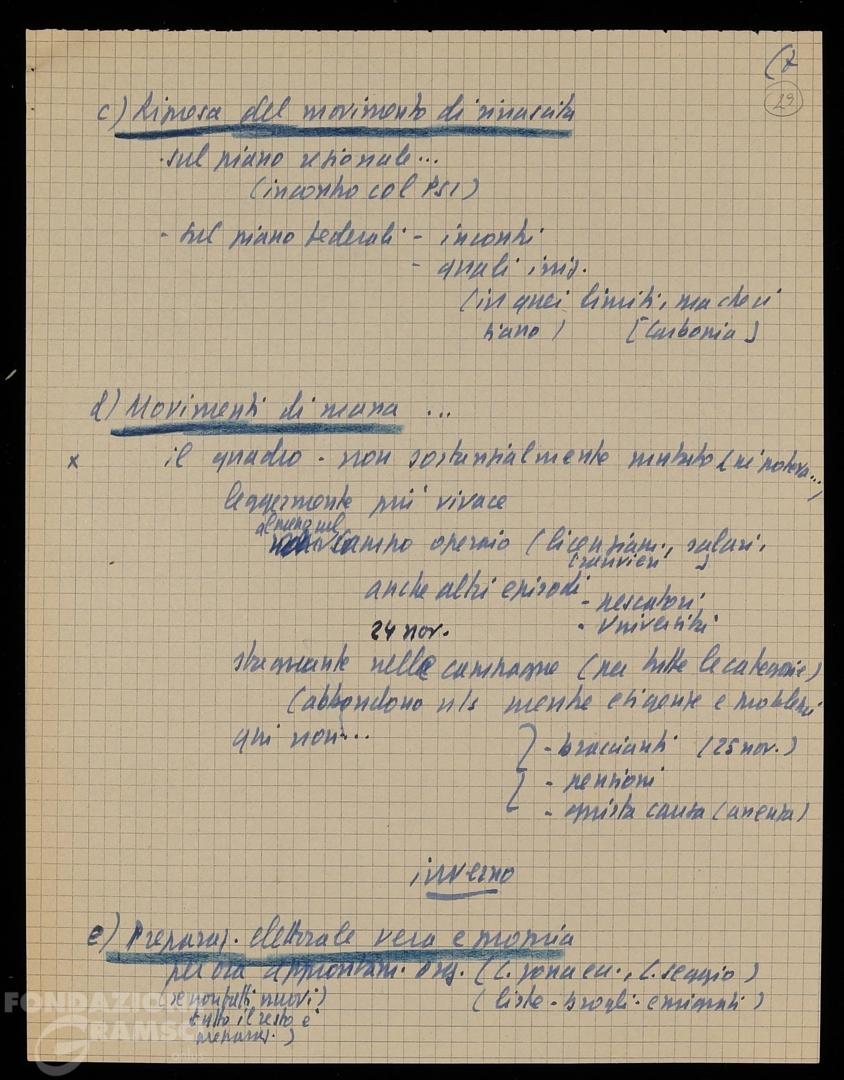 (7
29
c) Ripresa del movimento di rinascita
- sul piano regionale...
(incontro col PSI)
- sul piano federali - incontri
- quali iniz.
(in quei limiti, ma che vi
siano) [Carbonia]
d) Movimenti di massa ...
x il quadro - non sostanzialmente mutato (né poteva...)
leggermente più vivace
almeno nel
campo operaio (licenziam., salari,
tranvieri)
anche altri episodi - pescatori
24 nov. - Università
stagnante nelle campagne (per tutte le categorie)
(abbandono n/s mentre esigenze e problemi
qui non...
- braccianti (25 nov.)
- pensioni
- giusta causa (assenza)
inverno
e) Preparaz. elettorale vera e propria
per ora approntam. org. (C. zona ecc., C. seggio)
(se non fatti nuovi) (liste - brogli - emigrati)
tutto il resto è
preparaz.)
FONDAZIONE
GRAMSCI